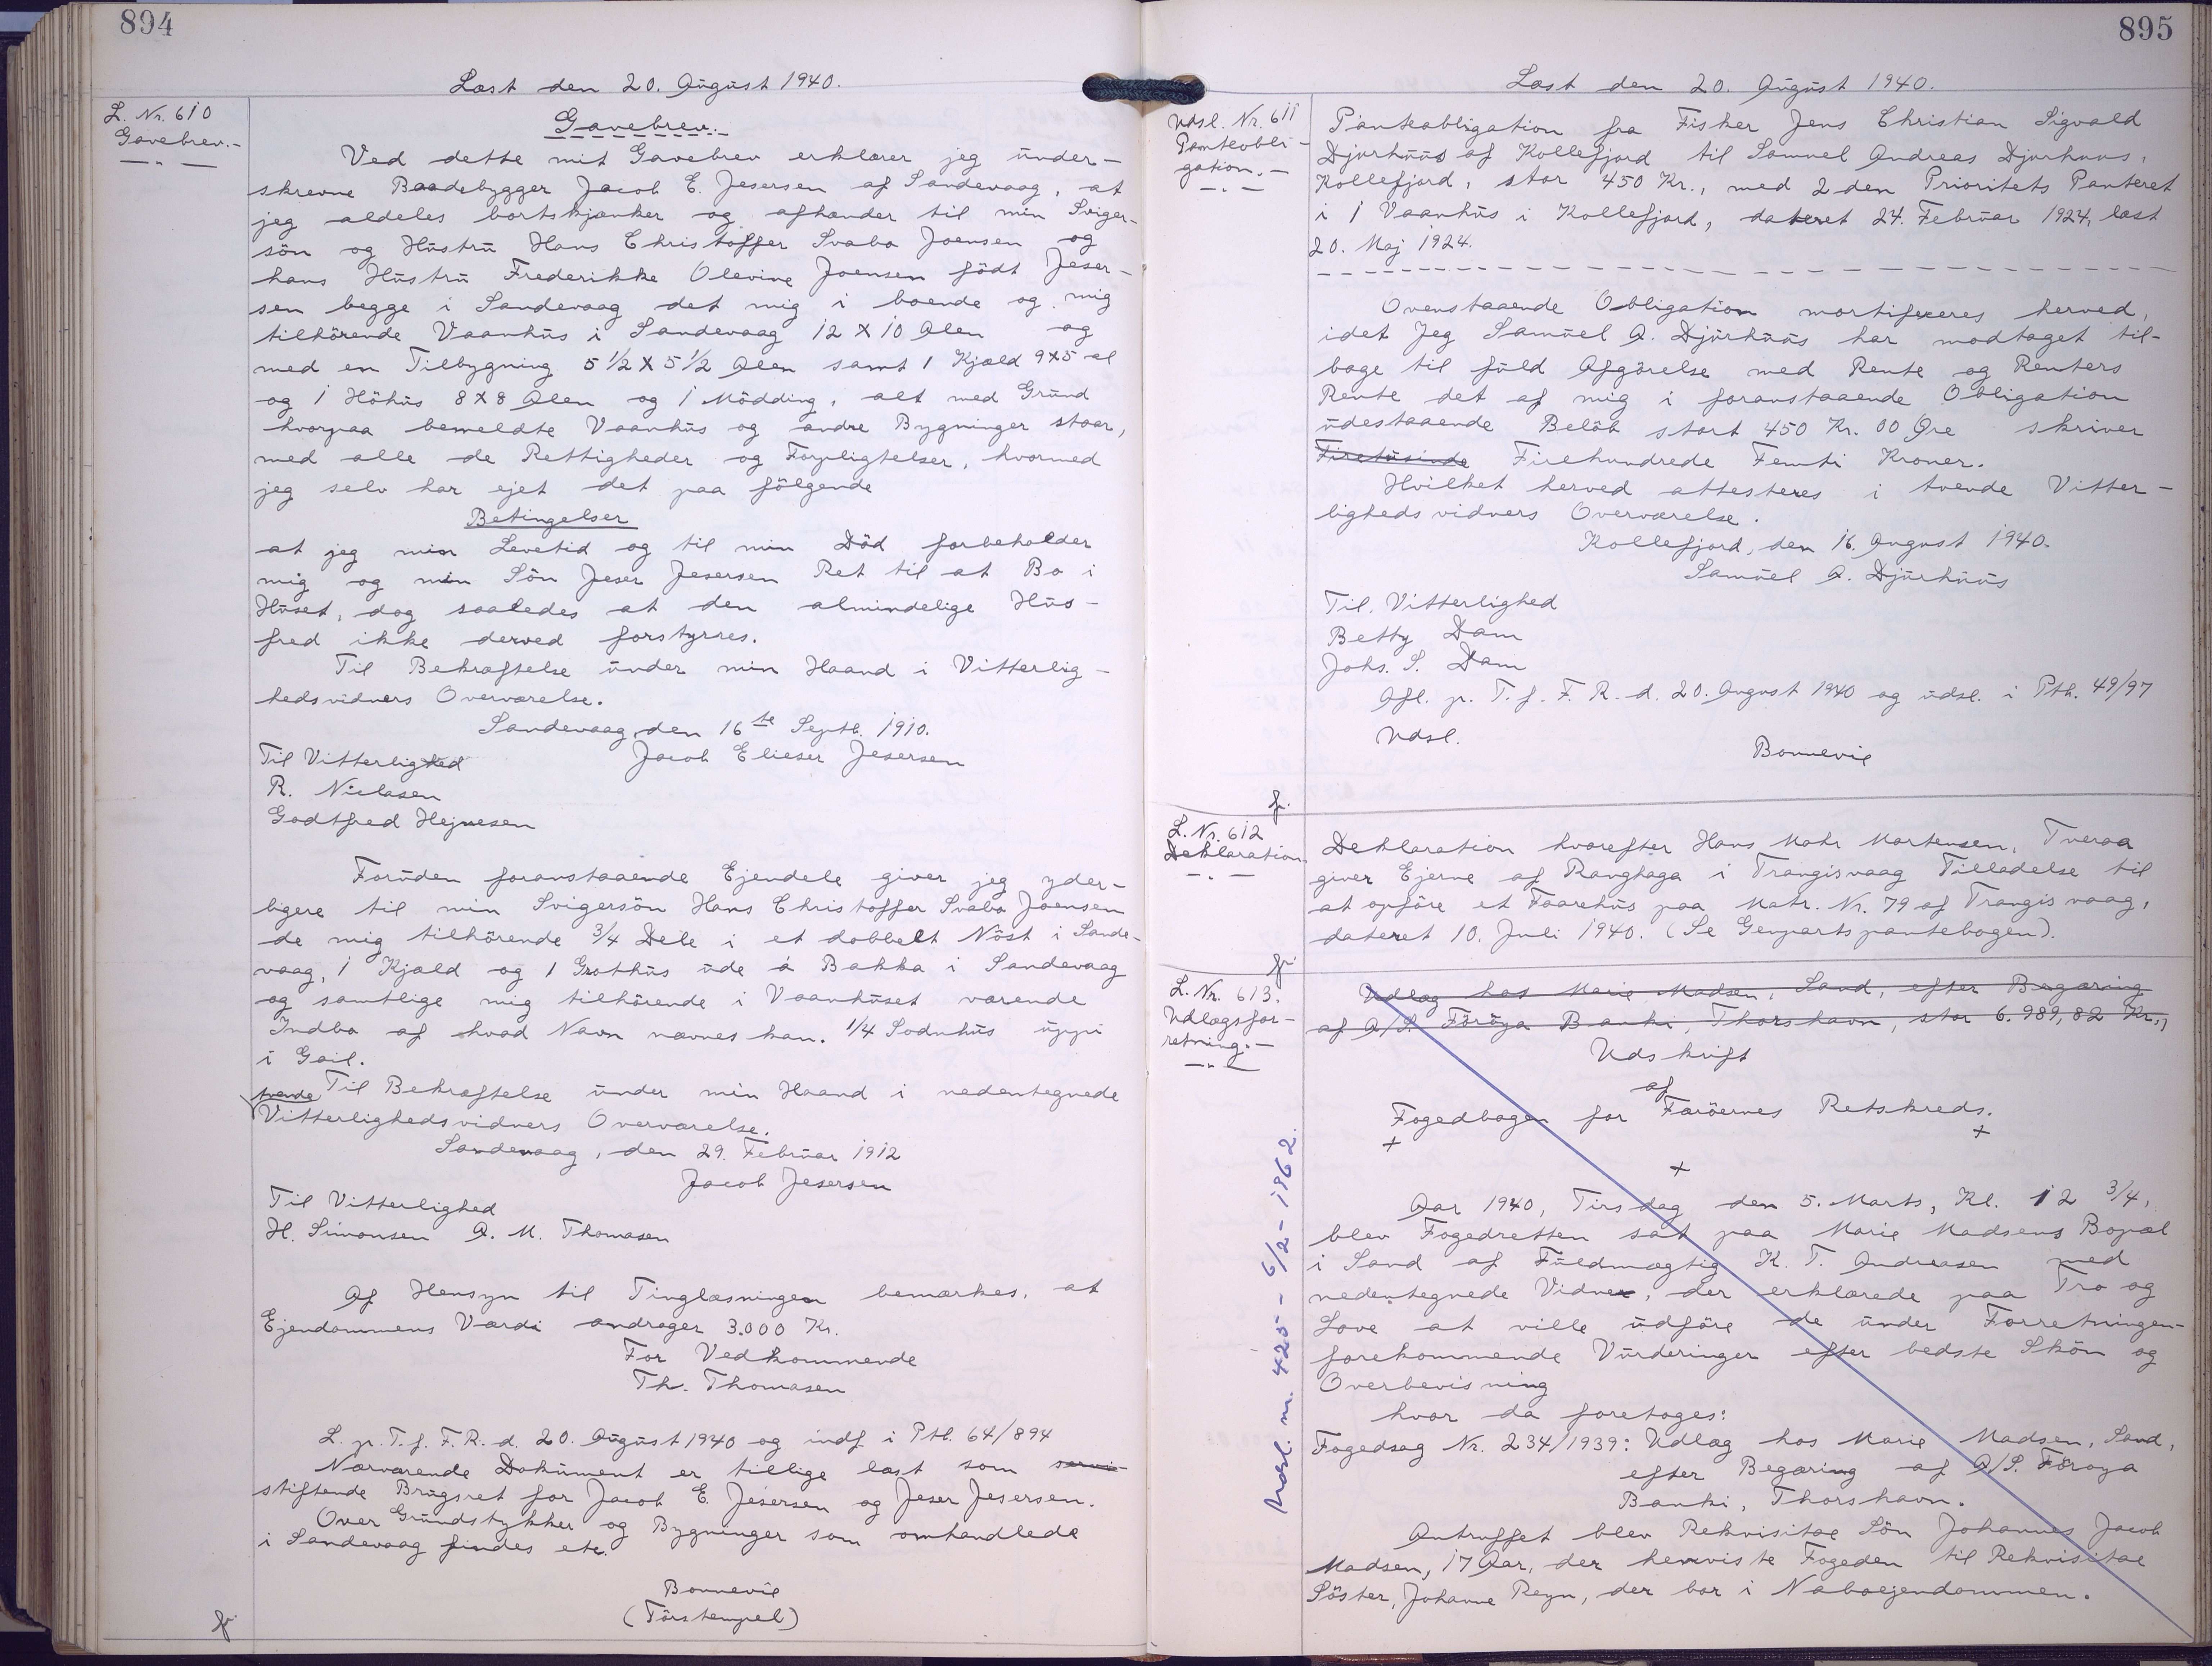 894
Læst den 20. August 1940.
L. Nr. 610
Gavebrev.-
Gavebrev.
Ved dette mit Gavebrev erklærer jeg under-
skrevne Baadebygger Jacob E. Jesersen af Sandevaag, at
jeg aldeles bortskjænker og afhænder til min Sviger-
sön og Hüstrü Hans Christoffer Svabo Joensen og
hans Hüstrü Frederikke Olevine Joensen födt Jeser-
sen begge i Sandevaag det mig i boende og mig
tilhörende Vaanhüs i Sandevaag 12 X 10 Alen og
med en Tilbygning 5 1/2 X 5 1/2 Alen samt 1 Kjæld 9x5 al
og 1 Höhüs 8 X 8 Alen og 1 Mödding, alt med Gründ
hvorpaa bemeldte Vaanhüs og andre Bygninger staar,
med alle de Rettigheder og Forpligtelser, hvormed
jeg selv har ejet det paa fölgende
Betingelser
at jeg min Levetid og til min Död forbeholder
mig og min Sön Jeser Jesersen Ret til at Bo i
Hüset, dog saaledes at den almindelige Hüs-
fred ikke derved forstyrres.
Til Bekræftelse ünder min Haand i Vitterlig-
hedsvidners Overværelse.
Sandevaag den 16te Septb. 1910.
Til Vitterlighed Jacob Elieser Jesersen
R. Niclasen
Godtfred Hejnesen
Forüden foranstaaende Ejendele giver jeg yder-
ligere til min Svigersön Hans Christoffer Svabo Joensen
de mig tilhörende 3/4 Dele i et dobbelt Nöst i Sande-
vaag, 1 Kjæld og 1 Grothüs üde á Bakka i Sandevaag
og samtlige mig tilhörende i Vaanhüset værende
Indbo af hvad Navn nævnes kan. 1/4 Sodnhüs üppi
i Gail.
tvende Til Bekræftelse ünder min Haand i nedentegnede
Vitterlighedsvidners Overværelse.
Sandevaag, den 29. Februar 1912
Jacob Jesersen
Til Vitterlighed
H. Simonsen A. M. Thomasen
Af Hensyn til Tinglæsningen bemærkes, at
Ejendommens Værdi andrager 3.000 Kr.
For Vedkommende
Th. Thomasen
L. p. T. f. F. R. d. 20. August 1940 og indf. i Ptb. 64/894
Nærværende Dokument er tillige læst som servi-
stiftende Brugsret for Jacob E. Jesersen og Jeser Jesersen.
Over Gründstykker og Bygninger som omhandlede
i Sandevaag findes etc.
Bonnevie
(Törstempel)
fr.
895
Læst den 20. August 1940.
Udsl. Nr. 611
Panteobli-
gation.-
Panteobligation fra Fisker Jens Christian Sigvald
Djurhüüs af Kollefjord til Samuel Andreas Djurhuus,
Kollefjord, stor 450 Kr., med 2den Prioritets Panteret
i 1 Vaanhüs i Kollefjord, dateret 24. Februar 1924, læst
20. Maj 1924.
Ovenstaaende Obligation mortificeres herved,
idet Jeg Samüel A. Djürhüüs har modtaget til-
bage til füld Afgörelse med Rente og Renters
Rente det af mig i foranstaaende Obligation
üdestaaende Belöb stort 450 Kr. 00 Øre skriver
Firetüsinde Firehundrede Femti Kroner.
Hvilket herved attesteres i tvende Vitter-
lighedsvidners Overværelse.
Kollefjord, den 16. August 1940.
Samüel A. Djürhüüs
Til Vitterlighed
Betty Dam
Johs. S. Dam
Afl. p. T. f. F. R. d. 20. August 1940 og üdsl. i Ptb. 49/97
Udsl.
Bonnevie
fr.
L. Nr. 612
Deklaration
Deklaration hvorefter Hans Mohr Mortensen, Tveraa
giver Ejerne af Ranghaga i Trangisvaag Tilladelse til
at opföre et Faarehüs paa Matr. Nr. 79 af Trangisvaag,
dateret 10. Juli 1940. (Se Genpartspantebogen).
fr.
L. Nr. 613.
Udlægsfor-
retning.-
Udlæg hos Marie Madsen, Sand, efter Begæring
af A/S. Föröya Banki, Thorshavn, stor 6.989,82 Kr.,
Udskrift
af
Fogedbogen for Færöernes Retskreds.
+ + +
Aar 1940, Tirsdag den 5. Marts, Kl. 12 3/4,
blev Fogedretten sat paa Marie Madsens Bopæl
i Sand af Füldmægtig K. T. Andreasen med
nedentegnede Vidner, der erklærede paa Tro og
Love at ville üdföre de ünder Forretningen-
forekommende Vürderinger efter bedste Skön og
Overbevisning
hvor da foretoges:
Fogedsag Nr. 234/1939: Udlæg hos Marie Madsen, Sand,
efter Begæring af A/S. Föroya
Banki, Thorshavn.
Antruffet blev Rekvisitæ Sön Johannes Jacob
Madsen, 17 Aar, der henviste Fogeden til Rekvisitæ
Söster, Johanne Reyn, der bor i Naboejendommen.
Udsl. nr. 425 - 6/2 - 1962.